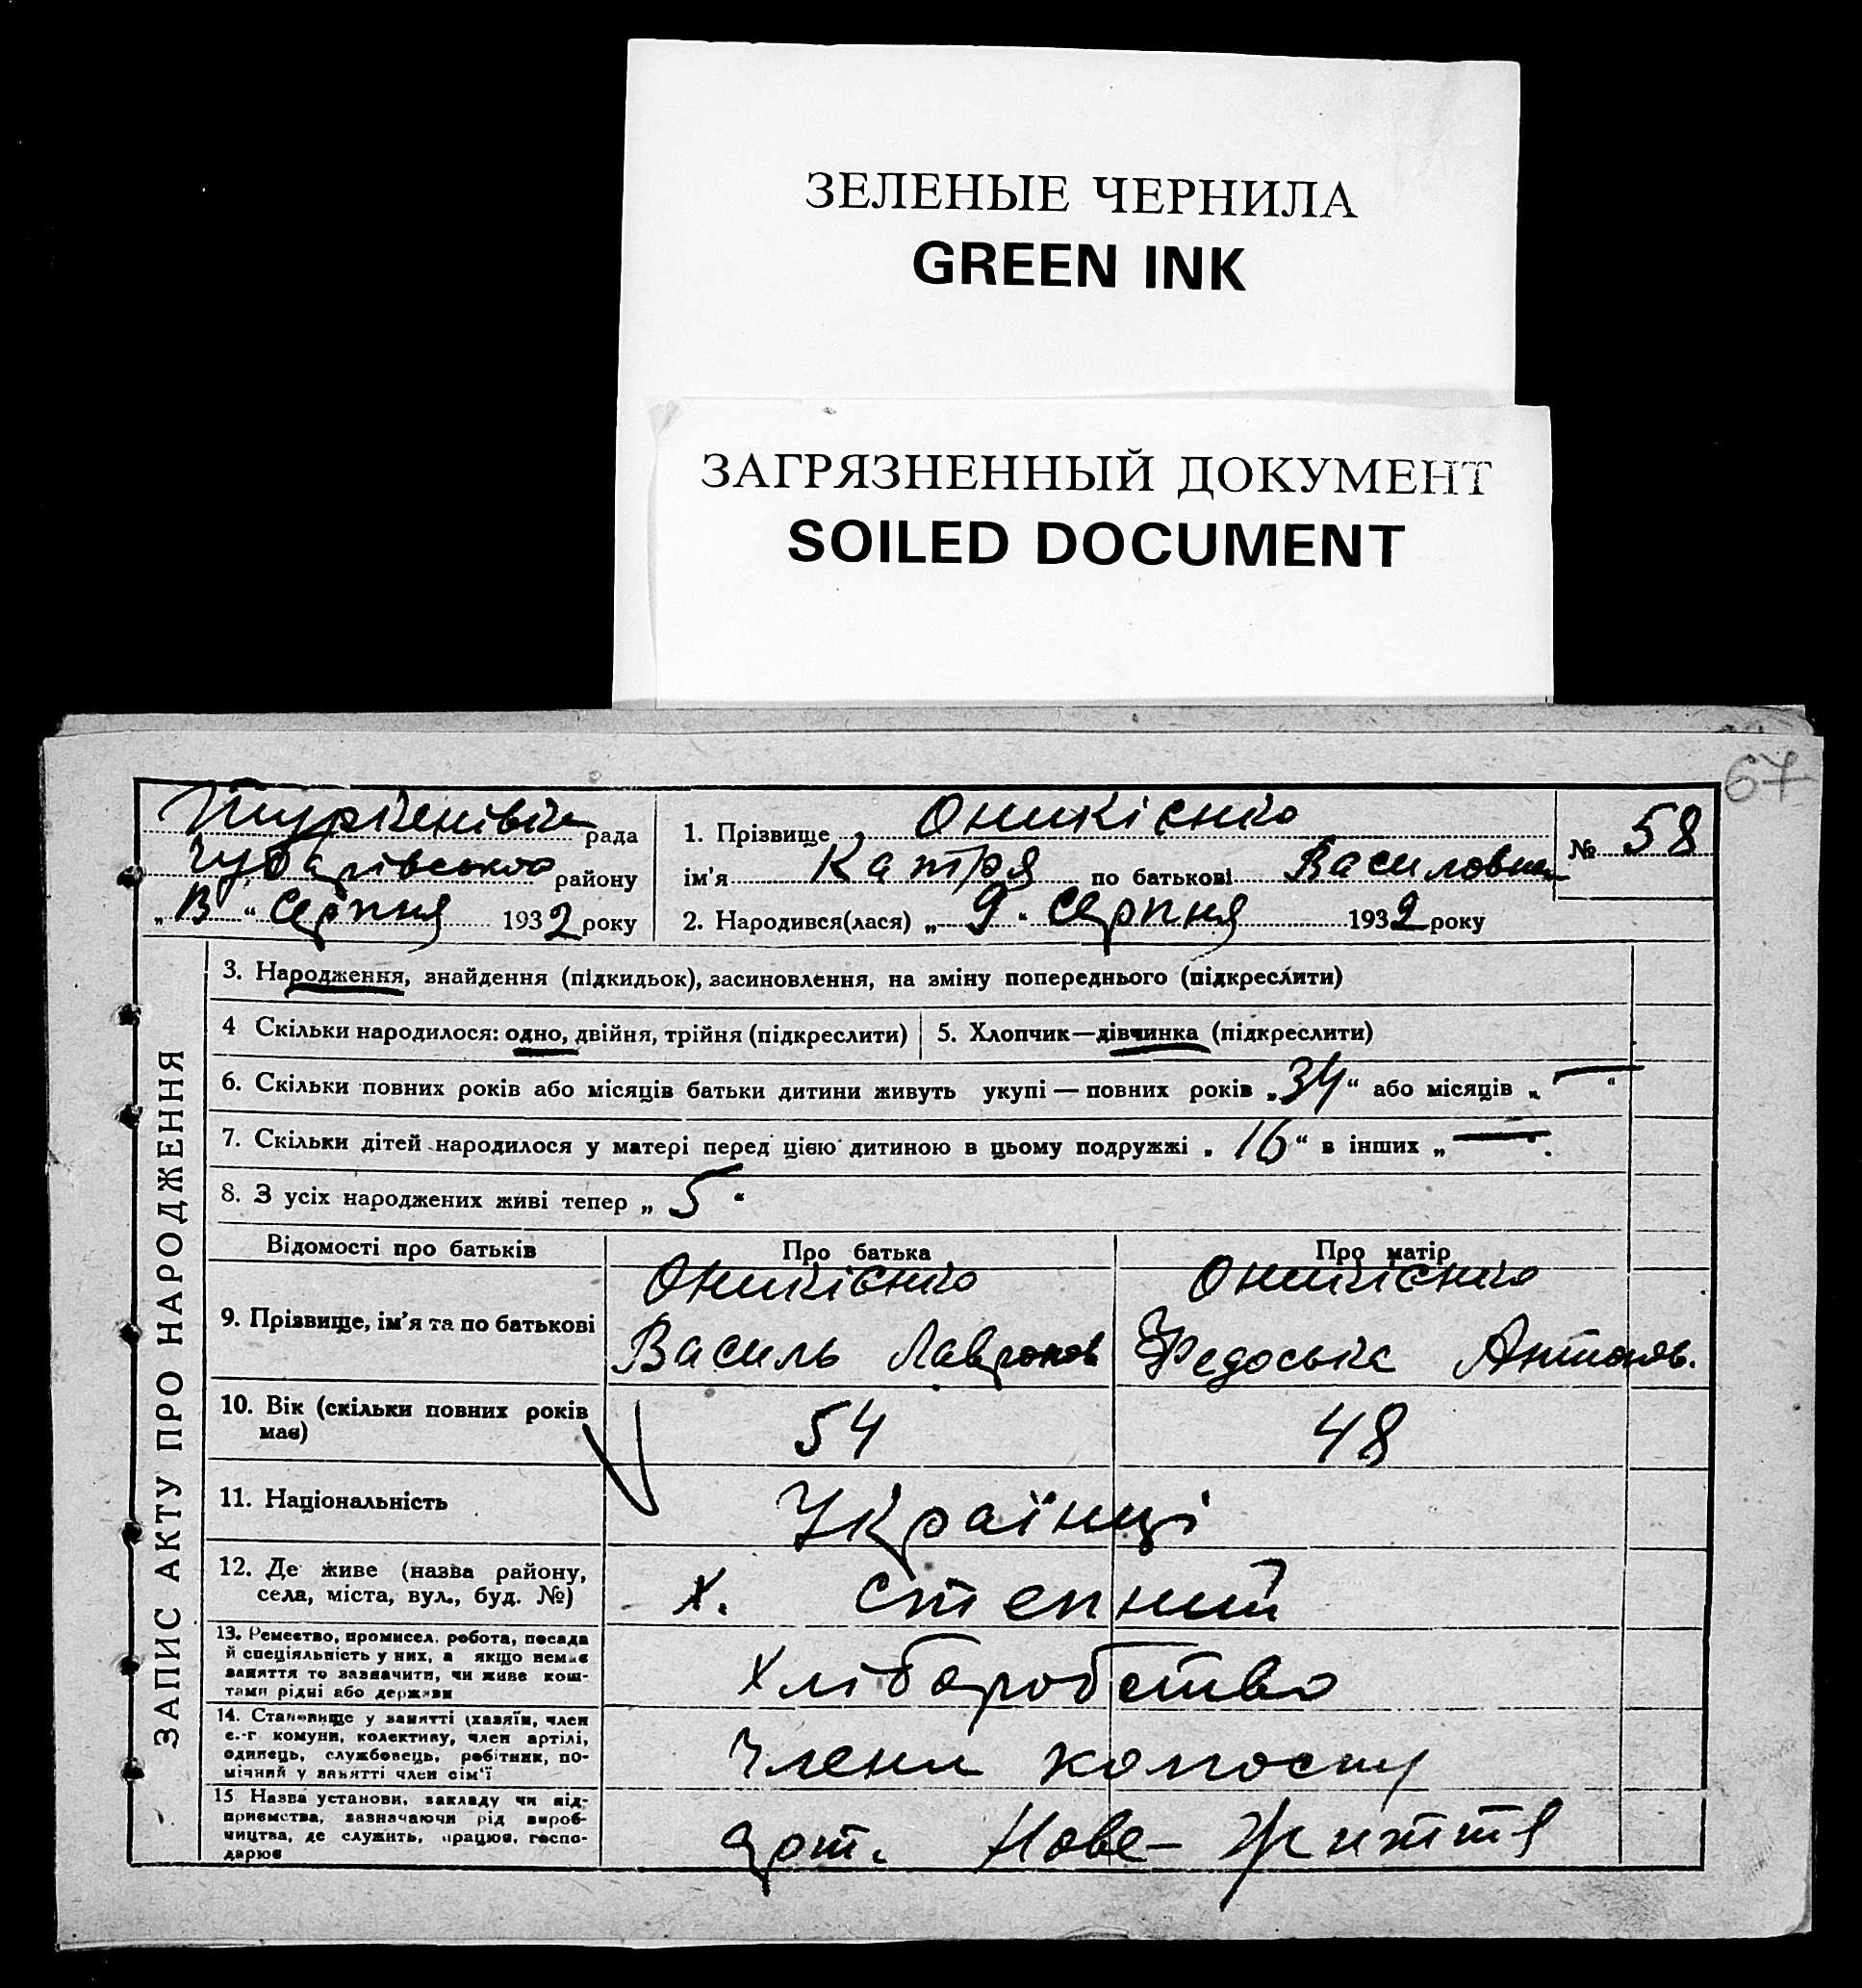 ЗЕЛЕНЫЕ ЧЕРНИЛА
GREEN INK
ЗАГРЯЗНЕННЫЙ ДОКУМЕНТ
SOILED DOCUMENT
67
ЗАПИС АКТУ ПРО НАРОДЖЕННЯ
рада
Чубарівського району
„ 13 “ Серпня 1932 року
1. Прізвище Оникієнко
ім'я Катря по батькові Василовна
2. Народився(лася) „ 9 “ Серпня 1932 року
№ 58
3. Народження, знайдення (підкидьок), засиновлення, на зміну попереднього (підкреслити)
4 Скільки народилося: одно, двійня, трійня (підкреслити)
5. Хлопчик—дівчинка (підкреслити)
6. Скільки повних років або місяців батьки дитини живуть укупі — повних років „ 34 “ або місяців „ — “
7. Скільки дітей народилося у матері перед цією дитиною в цьому подружжі „ 16 “ в інших „ — “
8. З усіх народжених живі тепер „ 5 “
Відомості про батьків
Про батька
Про матір
9. Прізвище, ім'я та по батькові
Оникієнко
Василь
Оникієнко
Федоська Антонов.
10. Вік (скільки повних років
має)
54
48
11. Національність
Українці
12. Де живе (назва району,
села, міста, вул., буд. №)
х. Степний
13. Ремество, промисел, робота, посада
й спеціяльність у них, а якщо немає
заняття то зазначити, чи живе кош-
тами рідні або держави
Хліборобство
14. Становище у занятті (хазяїн, член
с.-г комуни, колективу, член артілі,
одинець, службовець, робітник, по-
мічний у занятті член сім'ї
Члени колгоспу
15 Назва установи, закладу чи під-
приємства, зазначаючи рід вироб-
ництва, де служить, працює, госпо-
дарює
арт. Нове-Життя